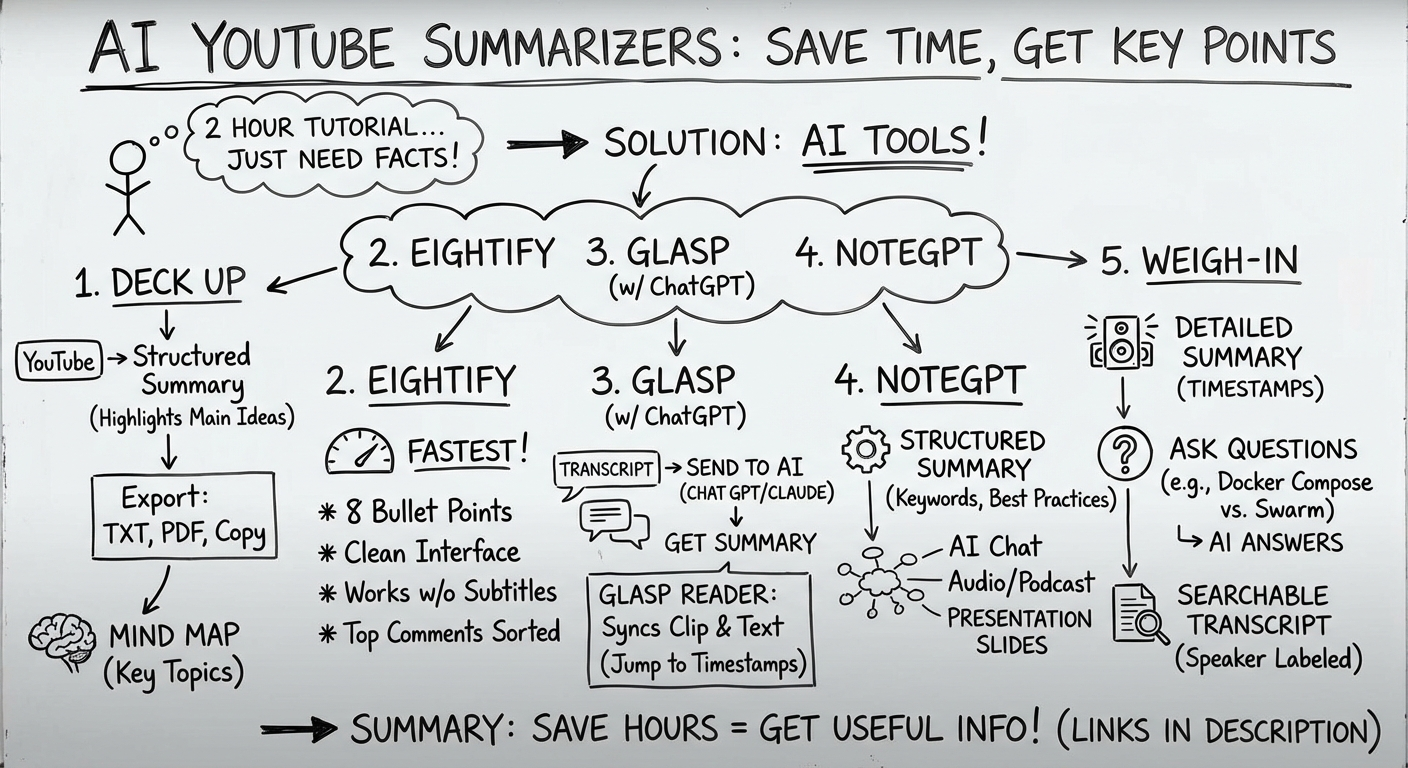 AI YOUTUBE SUMMARIZERS: SAVE TIME, GET KEY POINTS
2 HOUR TUTORIAL...
JUST NEED FACTS!
SOLUTION: AI TOOLS!
2. EIGHTIFY
3. GLASP
(w/ ChatGPT)
4. NOTEGPT
1. DECK UP
YouTube
Structured
Summary
(Highlights Main Ideas)
Export:
TXT, PDF, Copy
MIND MAP
(Key Topics)
2. EIGHTIFY
FASTEST!
* 8 Bullet Points
* Clean Interface
* Works w/o Subtitles
* Top Comments Sorted
3. GLASP
(w/ ChatGPT)
TRANSCRIPT
SEND TO AI
(CHAT GPT/CLAUDE)
GET SUMMARY
GLASP READER:
Syncs Clip & Text
(Jump to Timestamps)
4. NOTEGPT
STRUCTURED
SUMMARY
(Keywords, Best Practices)
AI Chat
Audio/Podcast
PRESENTATION
SLIDES
5. WEIGH-IN
DETAILED
SUMMARY
(TIMESTAMPS)
?
ASK QUESTIONS
(e.g., Docker Compose
vs. Swarm)
AI ANSWERS
SEARCHABLE
TRANSCRIPT
(Speaker Labeled)
SUMMARY: SAVE HOURS = GET USEFUL INFO! (LINKS IN DESCRIPTION)